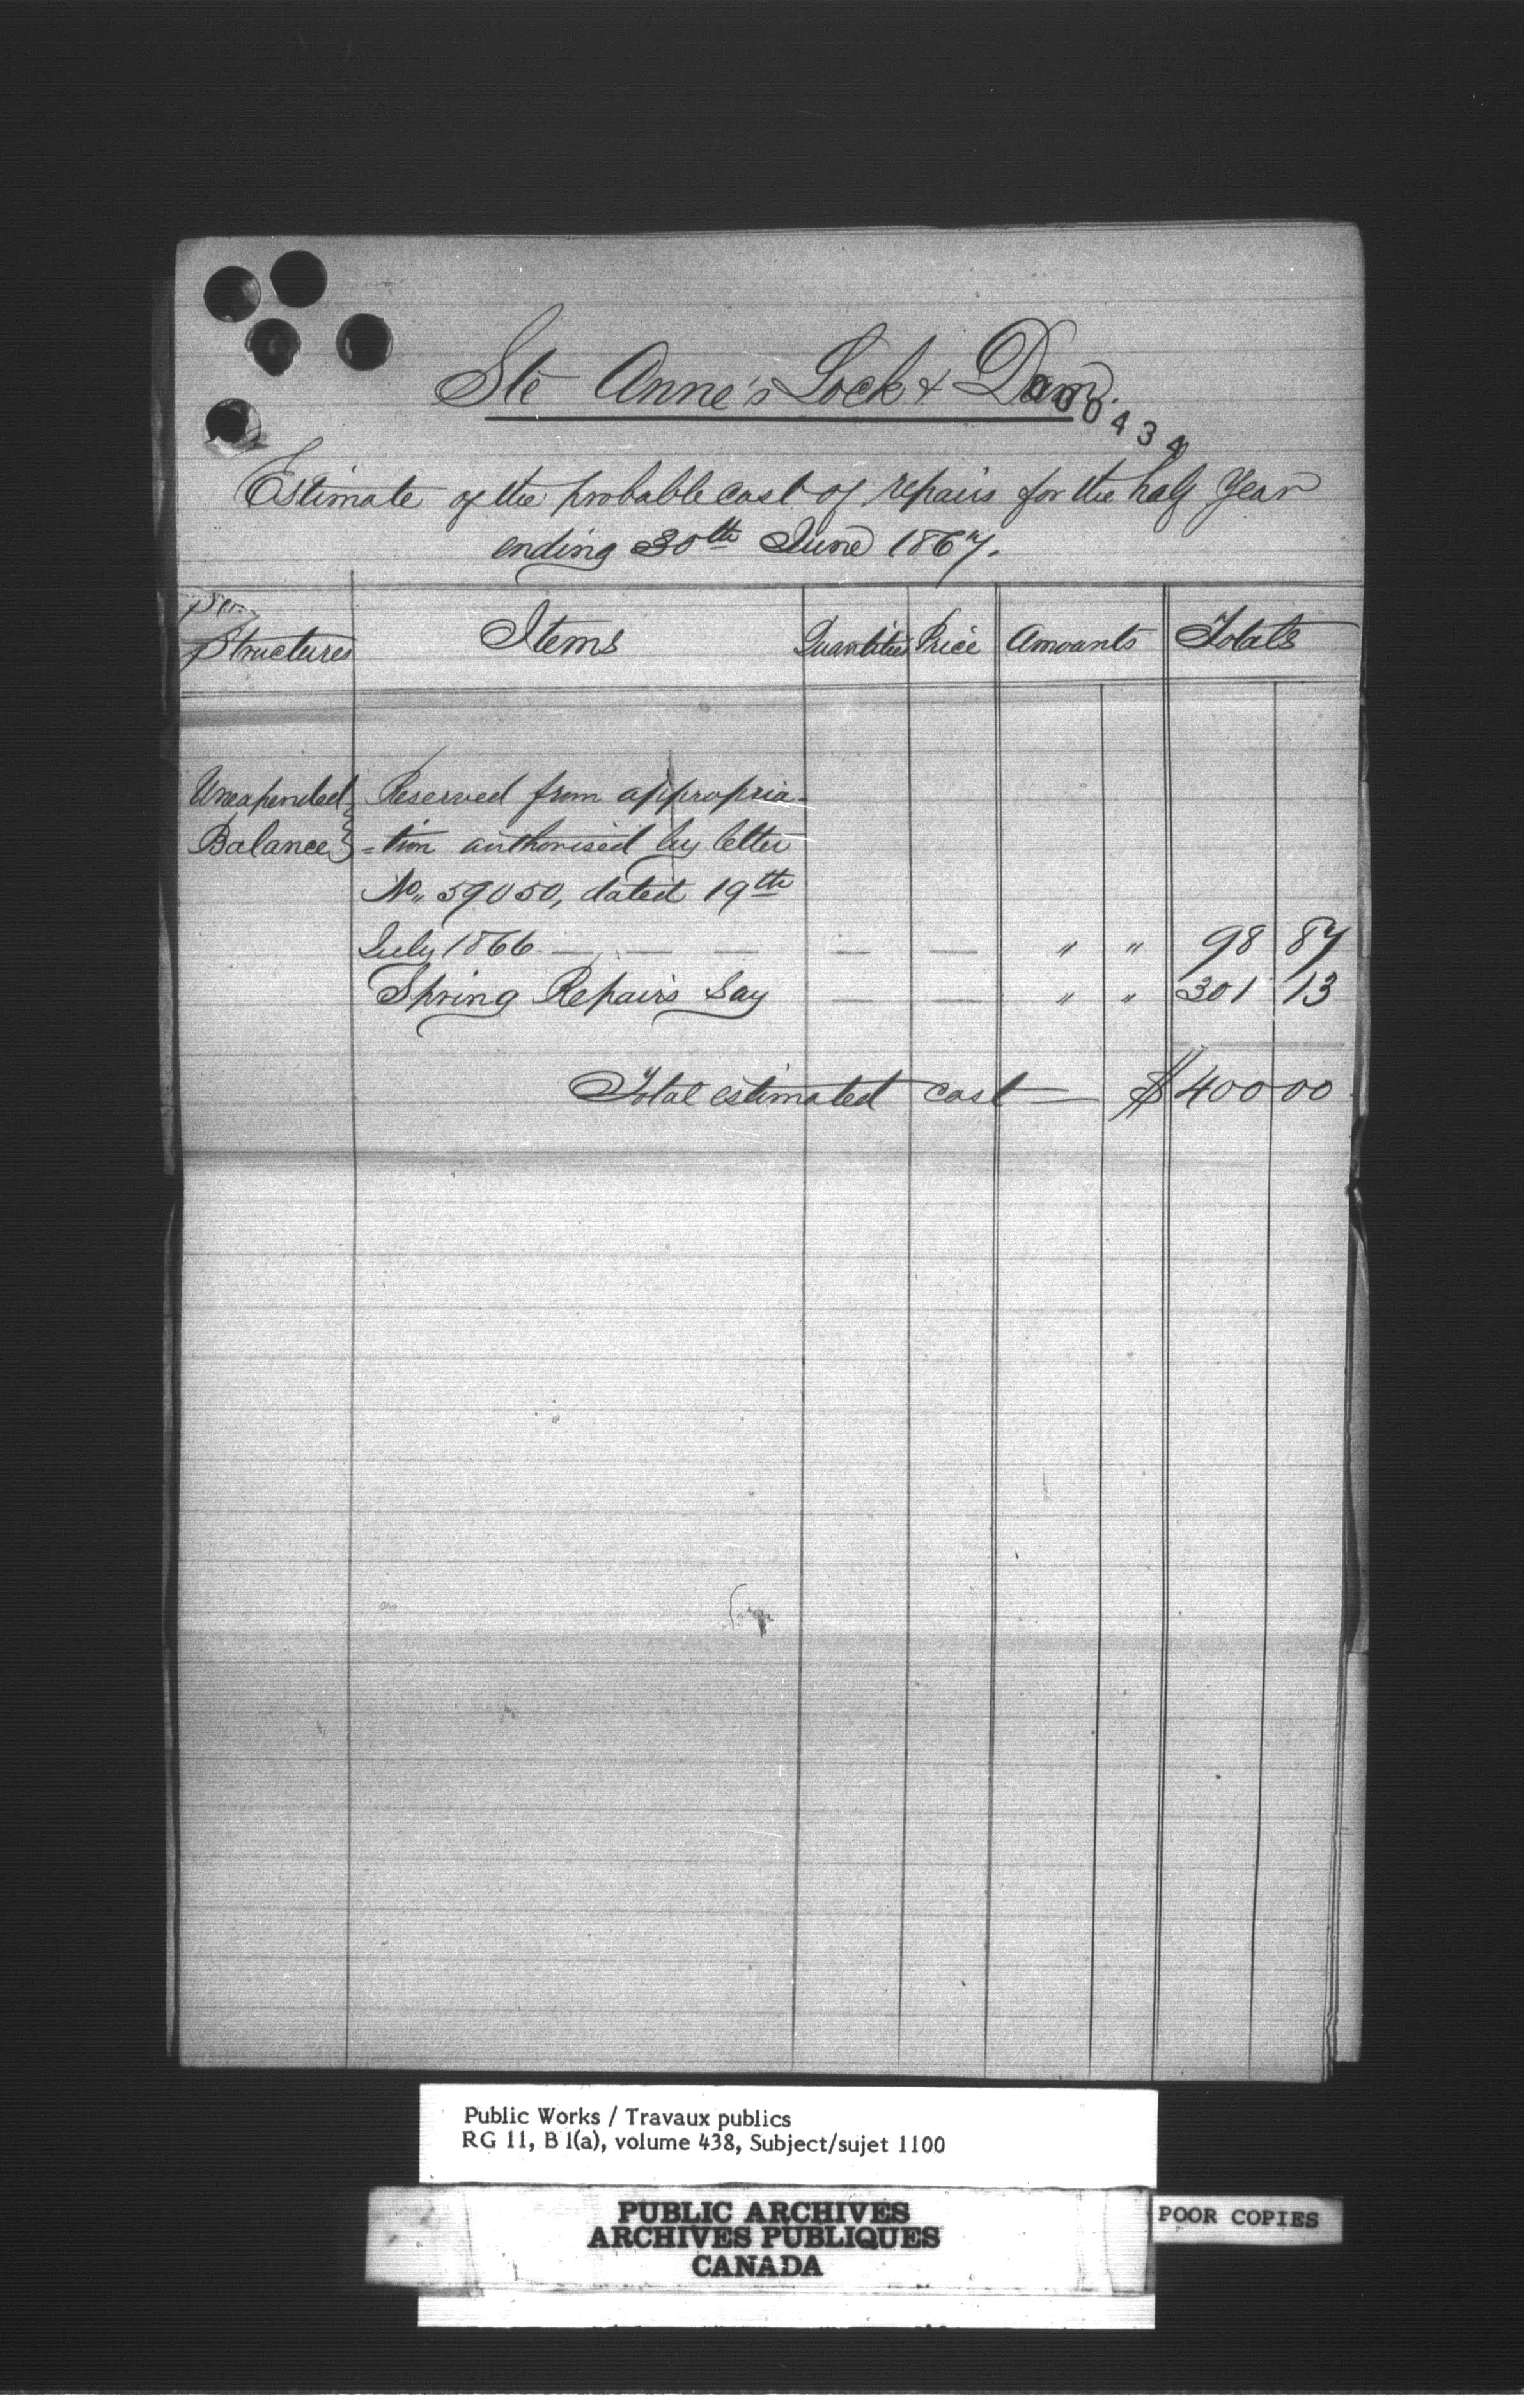 Ste Anne's Lock & Dam.
000434
Estimate of the probable cost of repairs for the half Year
ending 30th June 1867.
Structures Items Quantities Price Amounts Totals
Unexpended Reserved from appropria-
Balance =tion authorised by letter
No,, 59050, dated 19th
July 1866 — — — — — " " 98 87
Spring Repairs Say — — " " 301 13
Total estimated cost — $400 00
Public Works / Travaux publics
RG 11, B 1(a), volume 438, Subject/sujet 1100
PUBLIC ARCHIVES
ARCHIVES PUBLIQUES
CANADA
POOR COPIES